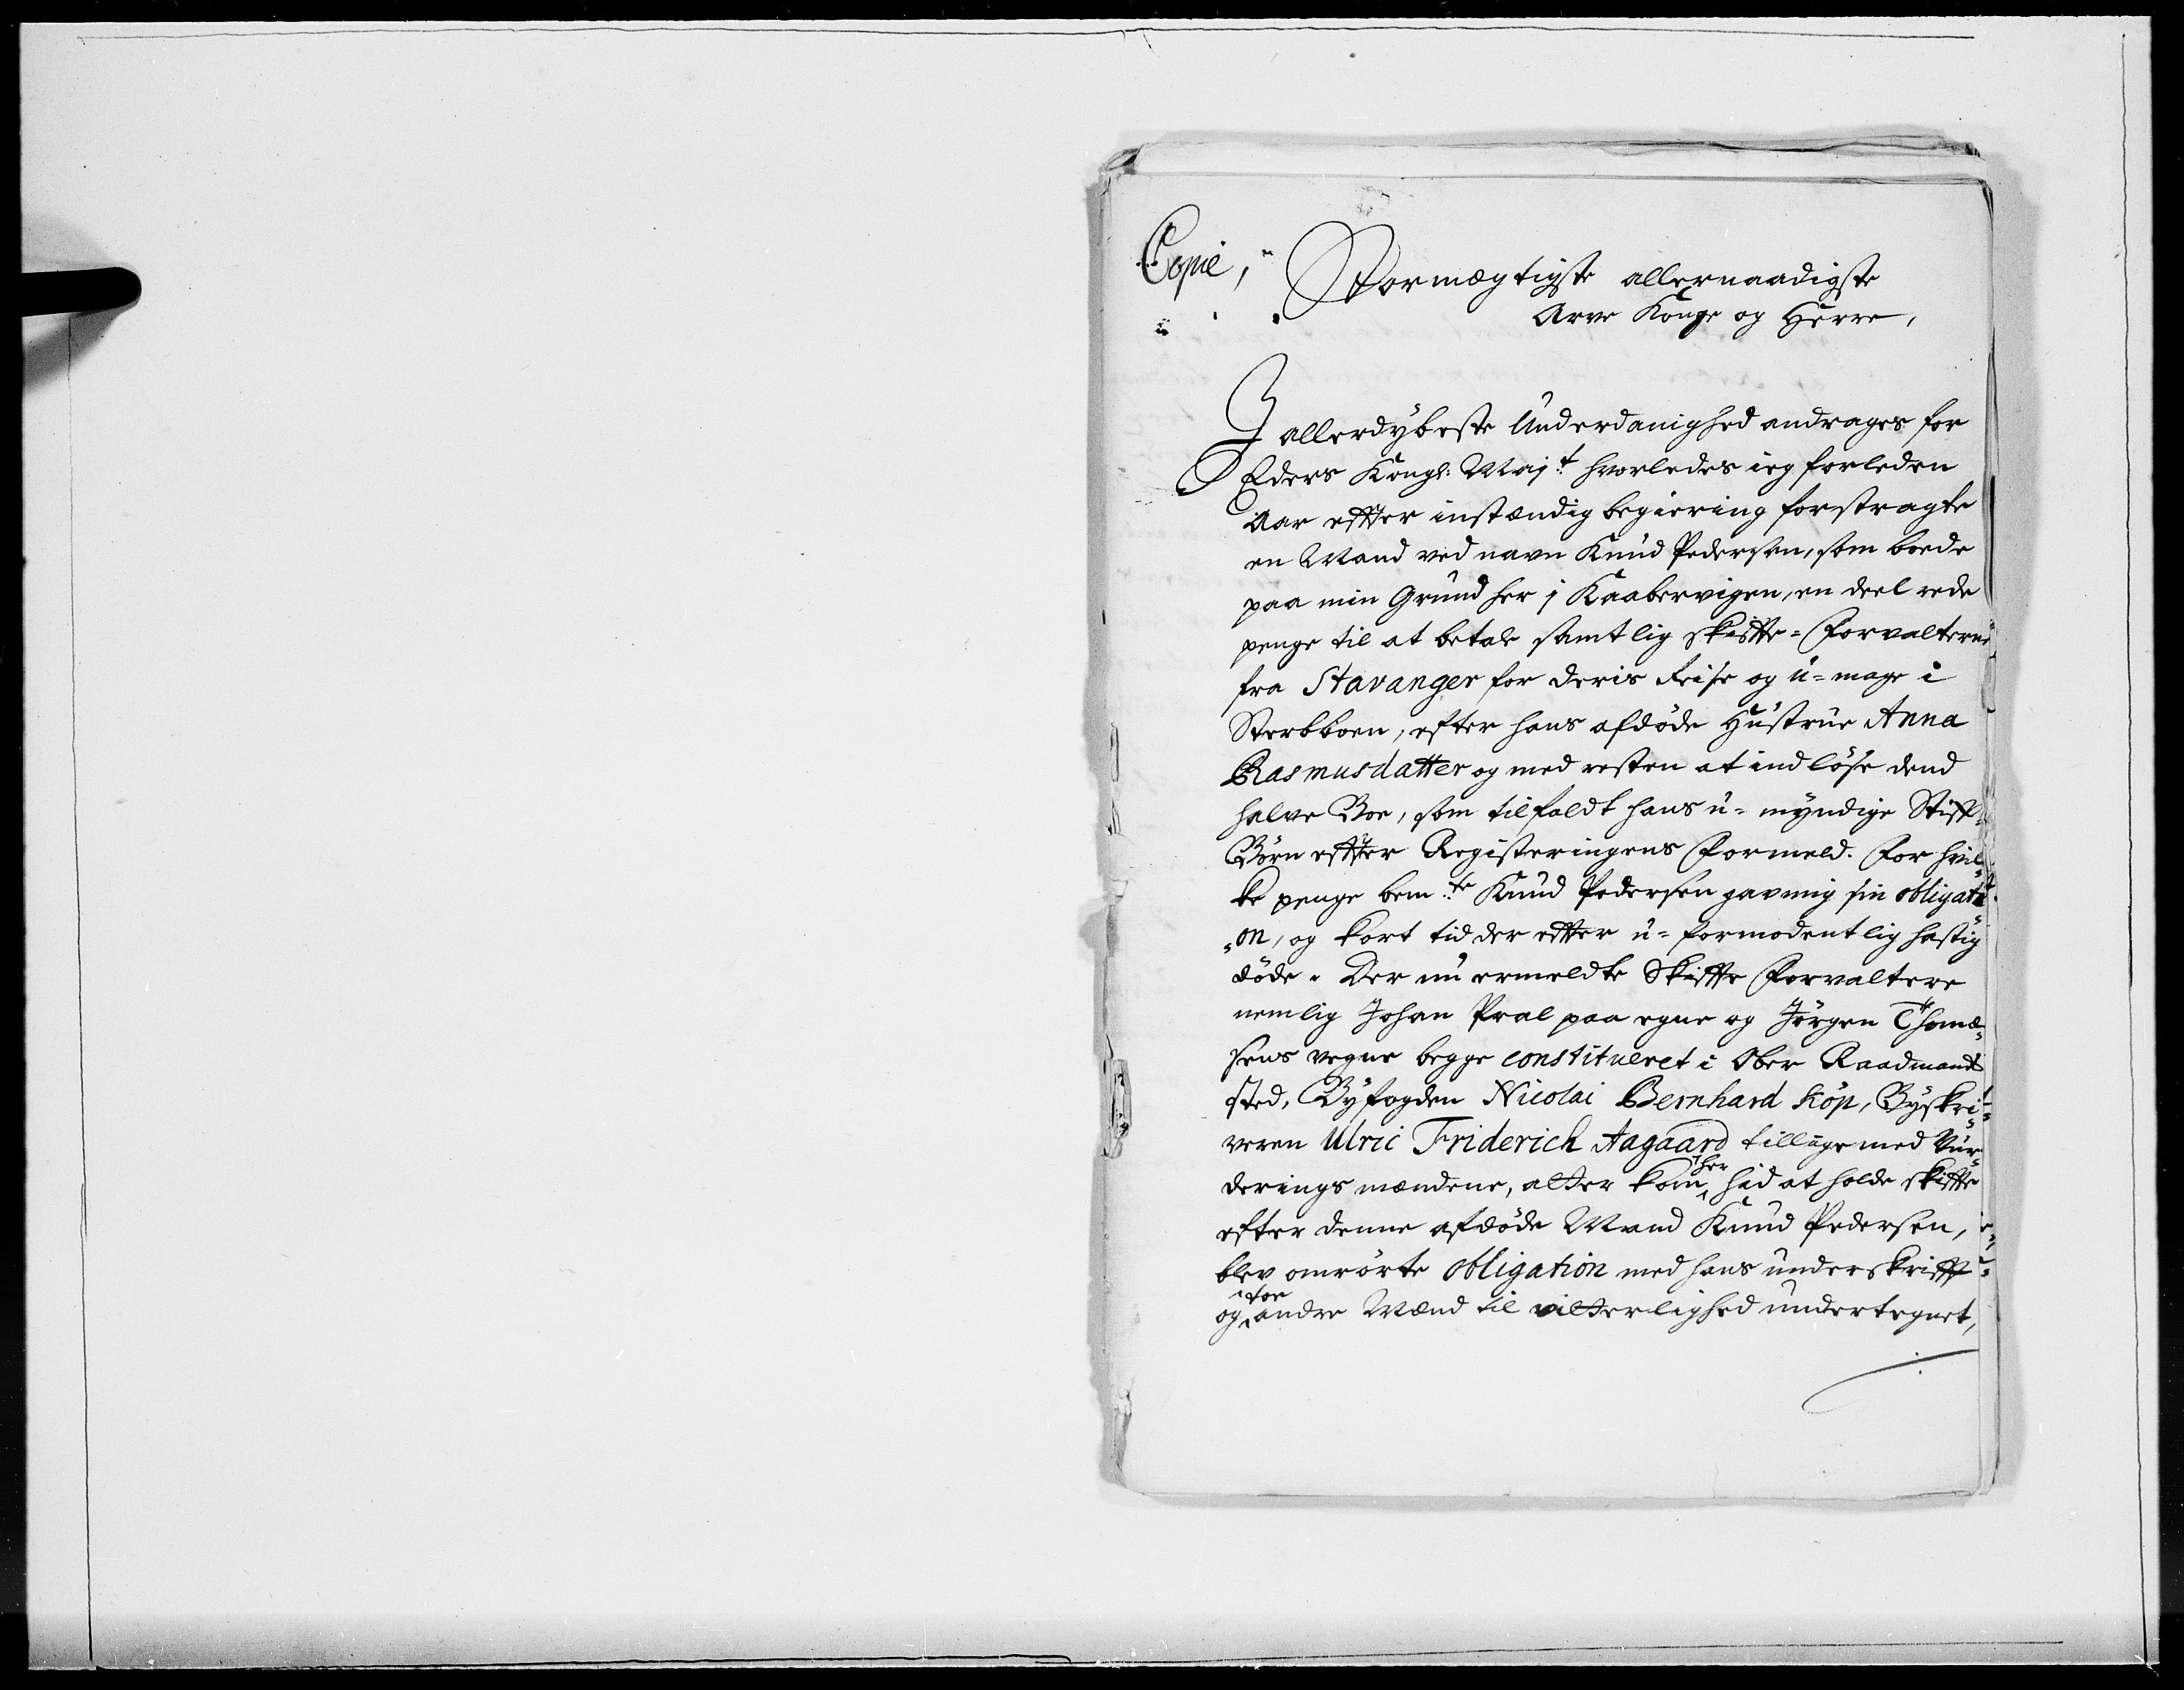 Copie,
Stormægtigste allernaadigste
Arve Konge og Herre,
I allerdybeste Underdanighed andrages for
Eders Kongl: Maj:t hvorledes ieg forleden
Aar effter instændig begiering forstragte
en Mand ved navn Knud Pedersen, som boede
paa min Grund her j Kaabervigen, en deel rede
penge til at betale samtlig skiffte=Forvalterne
fra Stavanger for deris Reise og u=mage i
Sterbboen, efter hans afdöde Hustrue Anna
Rasmusdatter og med resten at indlöse dend
halve Boe, som tilfaldt hans u=myndige Stiff=
Börn effter Registeringens Formeld. For hvil=
ke penge bem:te Knud Pedersen gav mig sin obligati=
=on, og kort tid der effter u=formodentlig hastig
döde. Der nu ermeldte Skiffte Forvaltere
nemlig Johan Pral paa egne og Jörgen Thomæ=
sens vegne begge constitueret i Ober Raadmands
sted, Byfogden Nicolai Bernhard Köp, Byskri=
veren Ulric Friderich Aagaard tillige med Vur=
derings mændene, atter kom her hid at holde skiffte
efter denne afdöde Mand Knud Pedersen,
blev omrörte obligation med hans underskrifft
og toe andre Mænd til vitterlighed undertegnet,